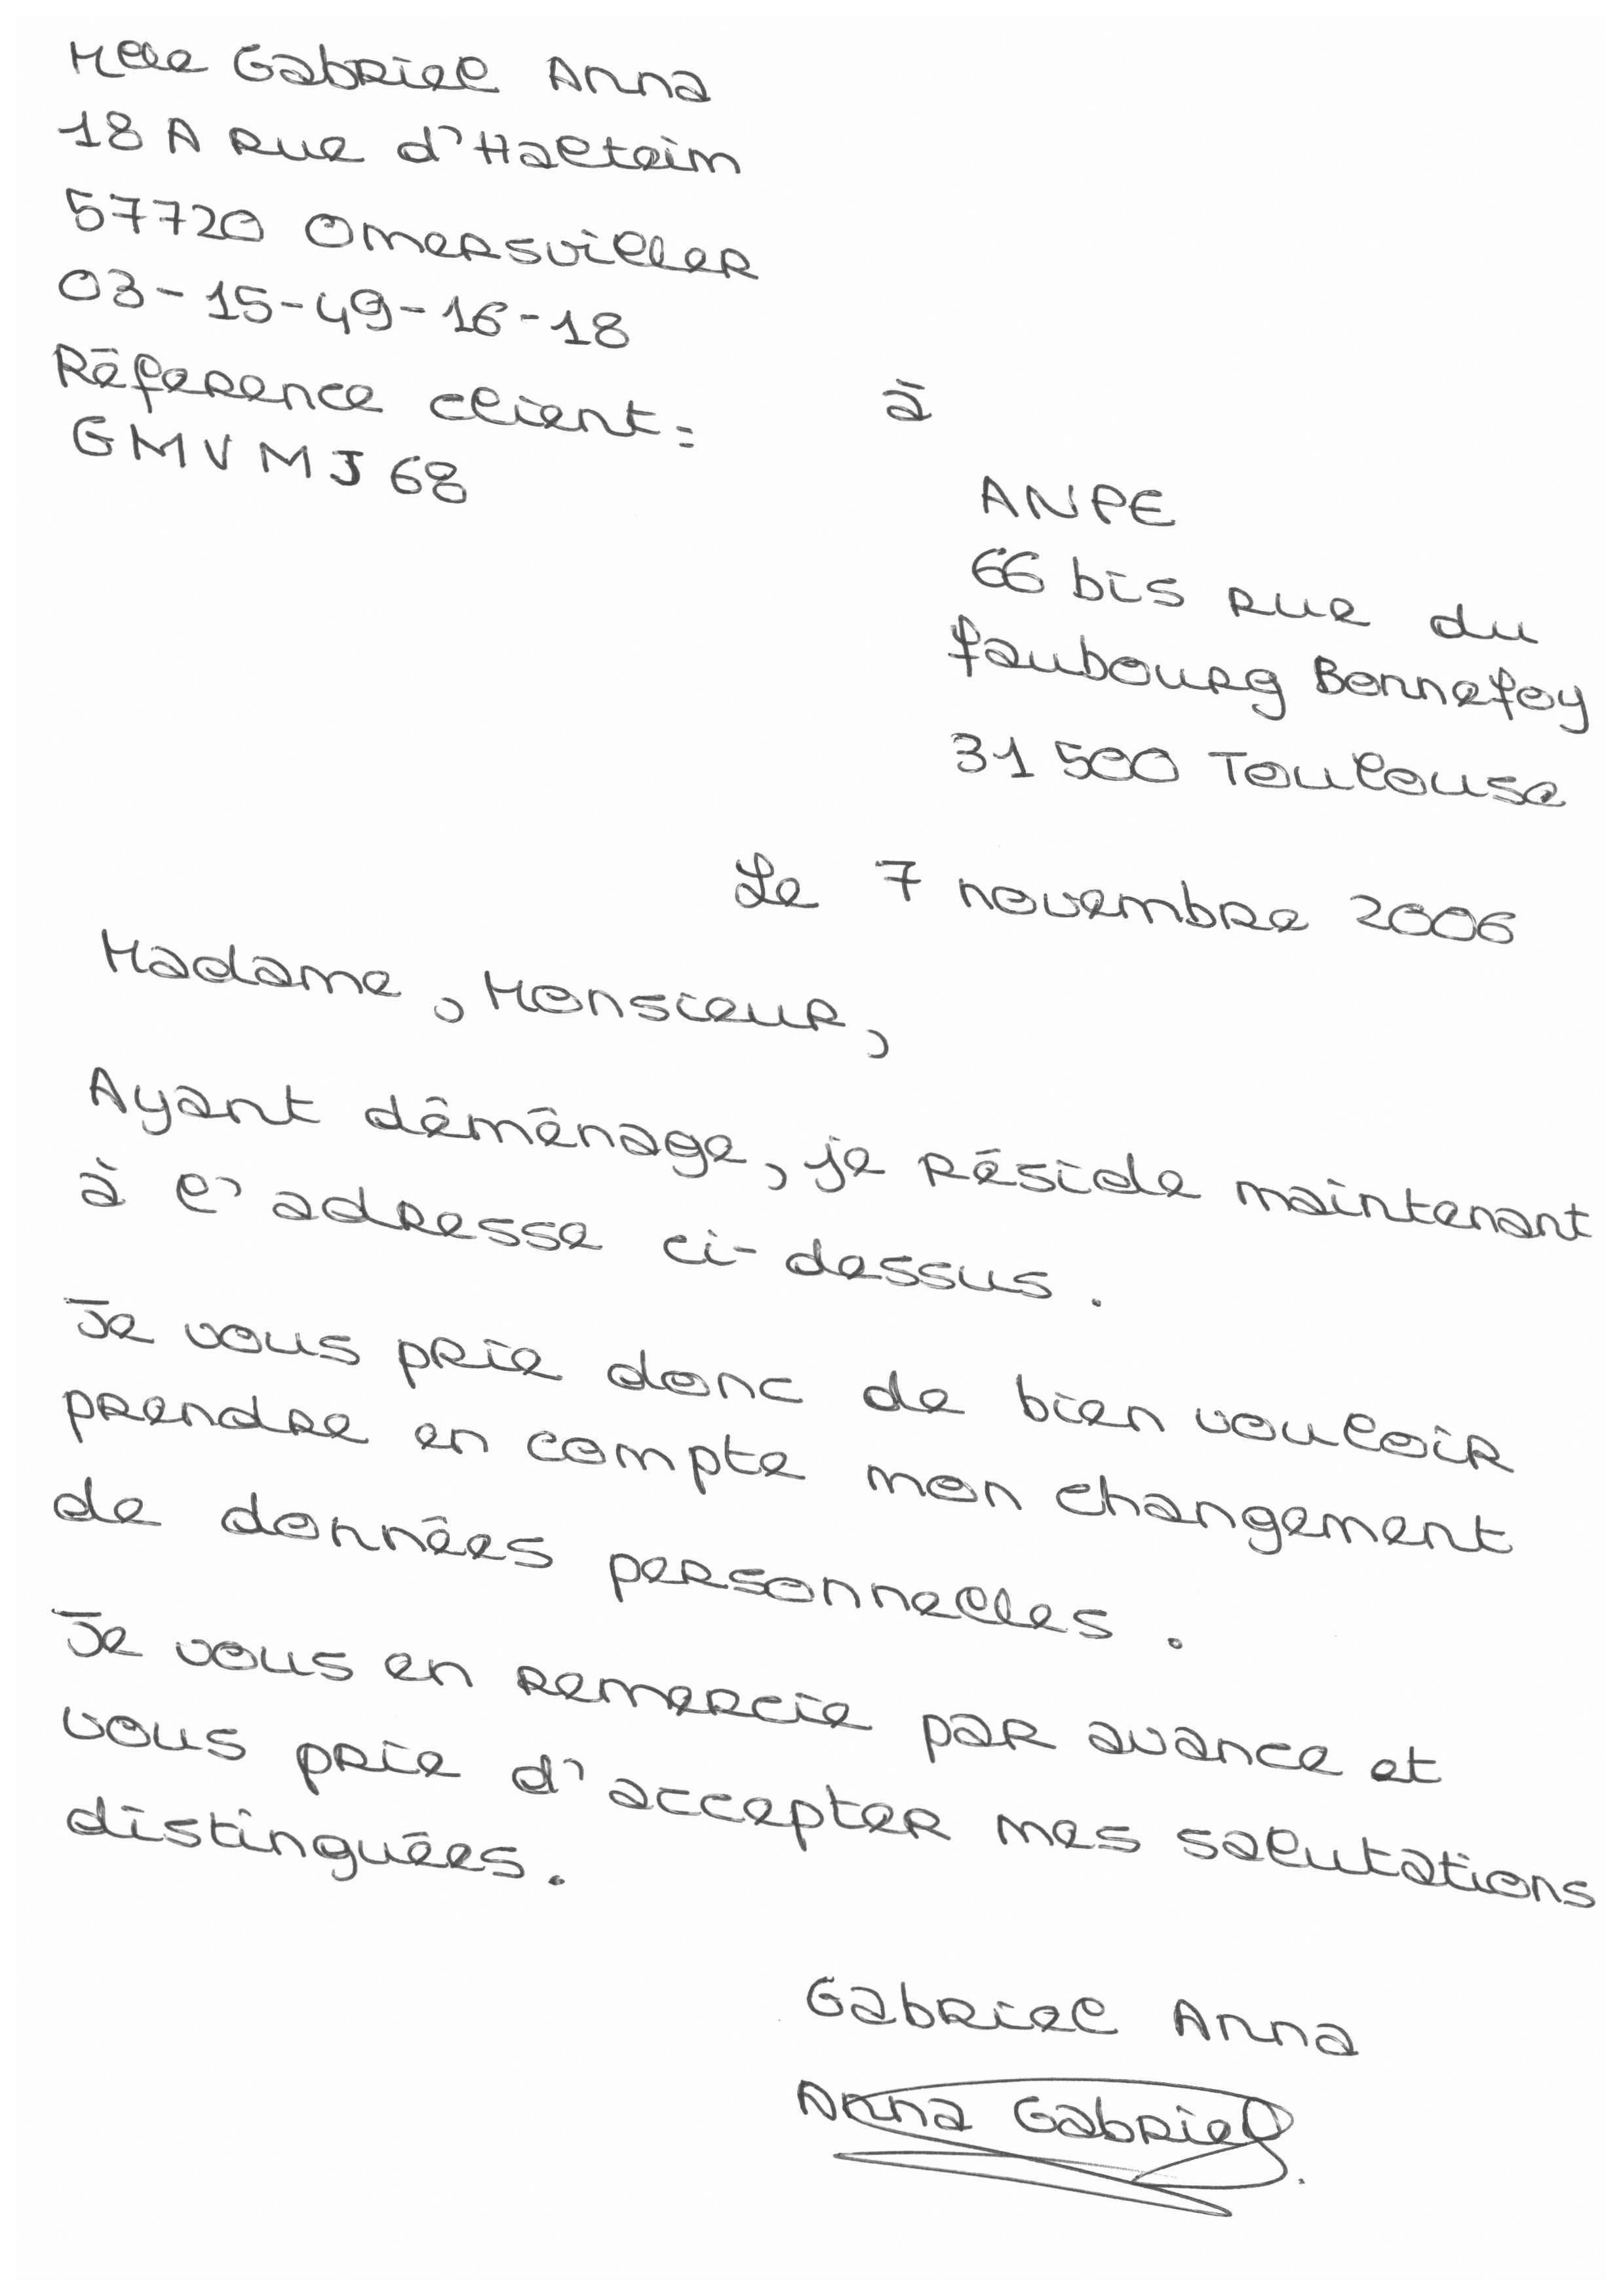 Melle Gabriel Anna
18 A Rue d'Halteim
57720 Omersviller
03-15-49-16-18
Réference client :
GMVMJ68
à
ANPE
66 bis rue du
faubourg Bonnefoy
31 500 Toulouse
Le 7 novembre 2006
Madame, Monsieur,
Ayant déménage, je réside maintenant
à l'adresse ci-dessus.
Je vous prie donc de bien vouloir
prendre en compte mon changement
de données personnelles.
Je vous en remercie par avance et
vous prie d'accepter mes salutations
distinguées.
Gabriel Anna
Anna Gabriel